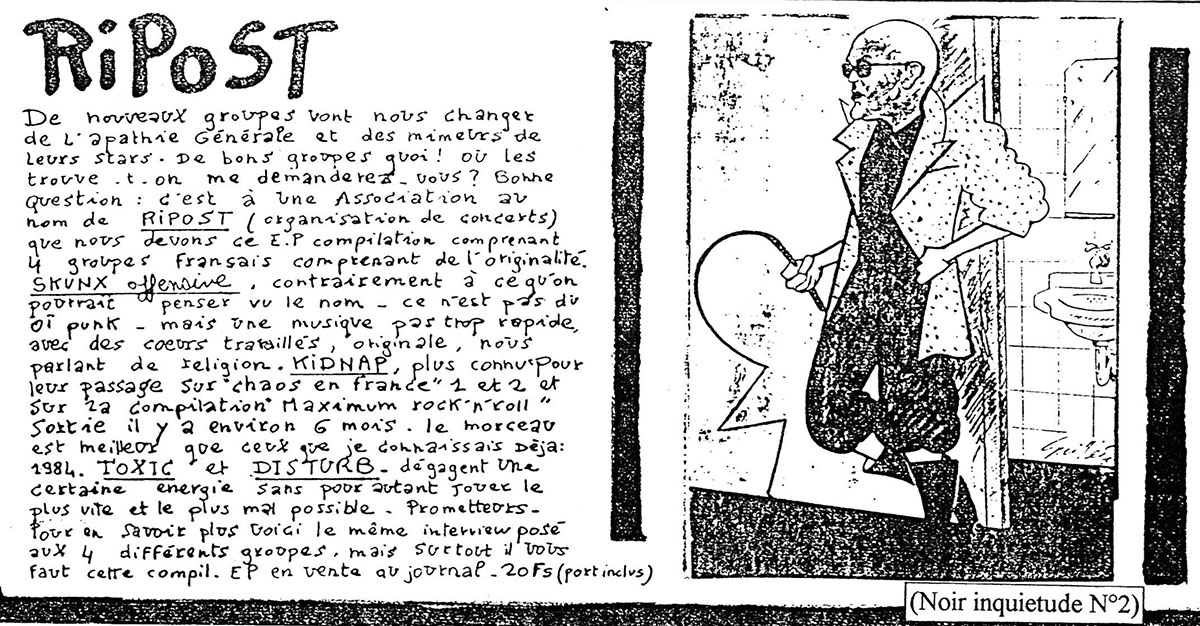 RiPOST
De nouveaux groupes vont nous changer
de L'apathie Générale et des mimeurs de
leurs stars. De bons groupes quoi! où les
trouve -t-on me demanderez-vous? Bonne
question : c'est à une Association au
nom de RiPOST (organisation de concerts)
que nous devons ce E.P compilation comprenant
4 groupes français comprenant de l'originalité.
SKUNX offensive, contrairement à ce qu'on
pourrait penser vu le nom - ce n'est pas du
oï punk - mais une musique pas trop rapide,
avec des coeurs travaillés, originale, nous
parlant de religion. KiDNAP, plus connu pour
leur passage sur "chaos en france" 1 et 2 et
sur la compilation "Maximum rock'n'roll"
sortie il y a environ 6 mois. le morceau
est meilleur que ceux que je connaissais Déjà:
1984. TOXIC et DISTURB - dégagent une
certaine energie sans pour autant jouer le
plus vite et le plus mal possible - Prometteurs -
Pour en savoir plus voici le même interview posé
aux 4 différents groupes, mais surtout il vous
faut cette compil. EP en vente au journal - 20Fs (port inclus)
(Noir inquietude N°2)